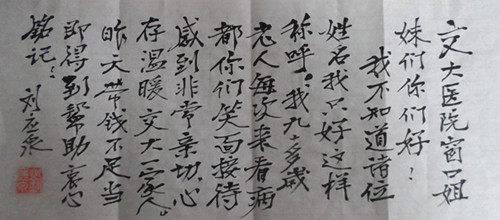 交大医院窗口姐
妹们你们好！
我不知道诸位
姓名我只好这样
称呼。我九十多岁
老人每次来看病
都你们笑面接待
感到非常亲切，心
存温暖交大一家人。
昨天带钱不足当
即得到帮助衷心
铭记！